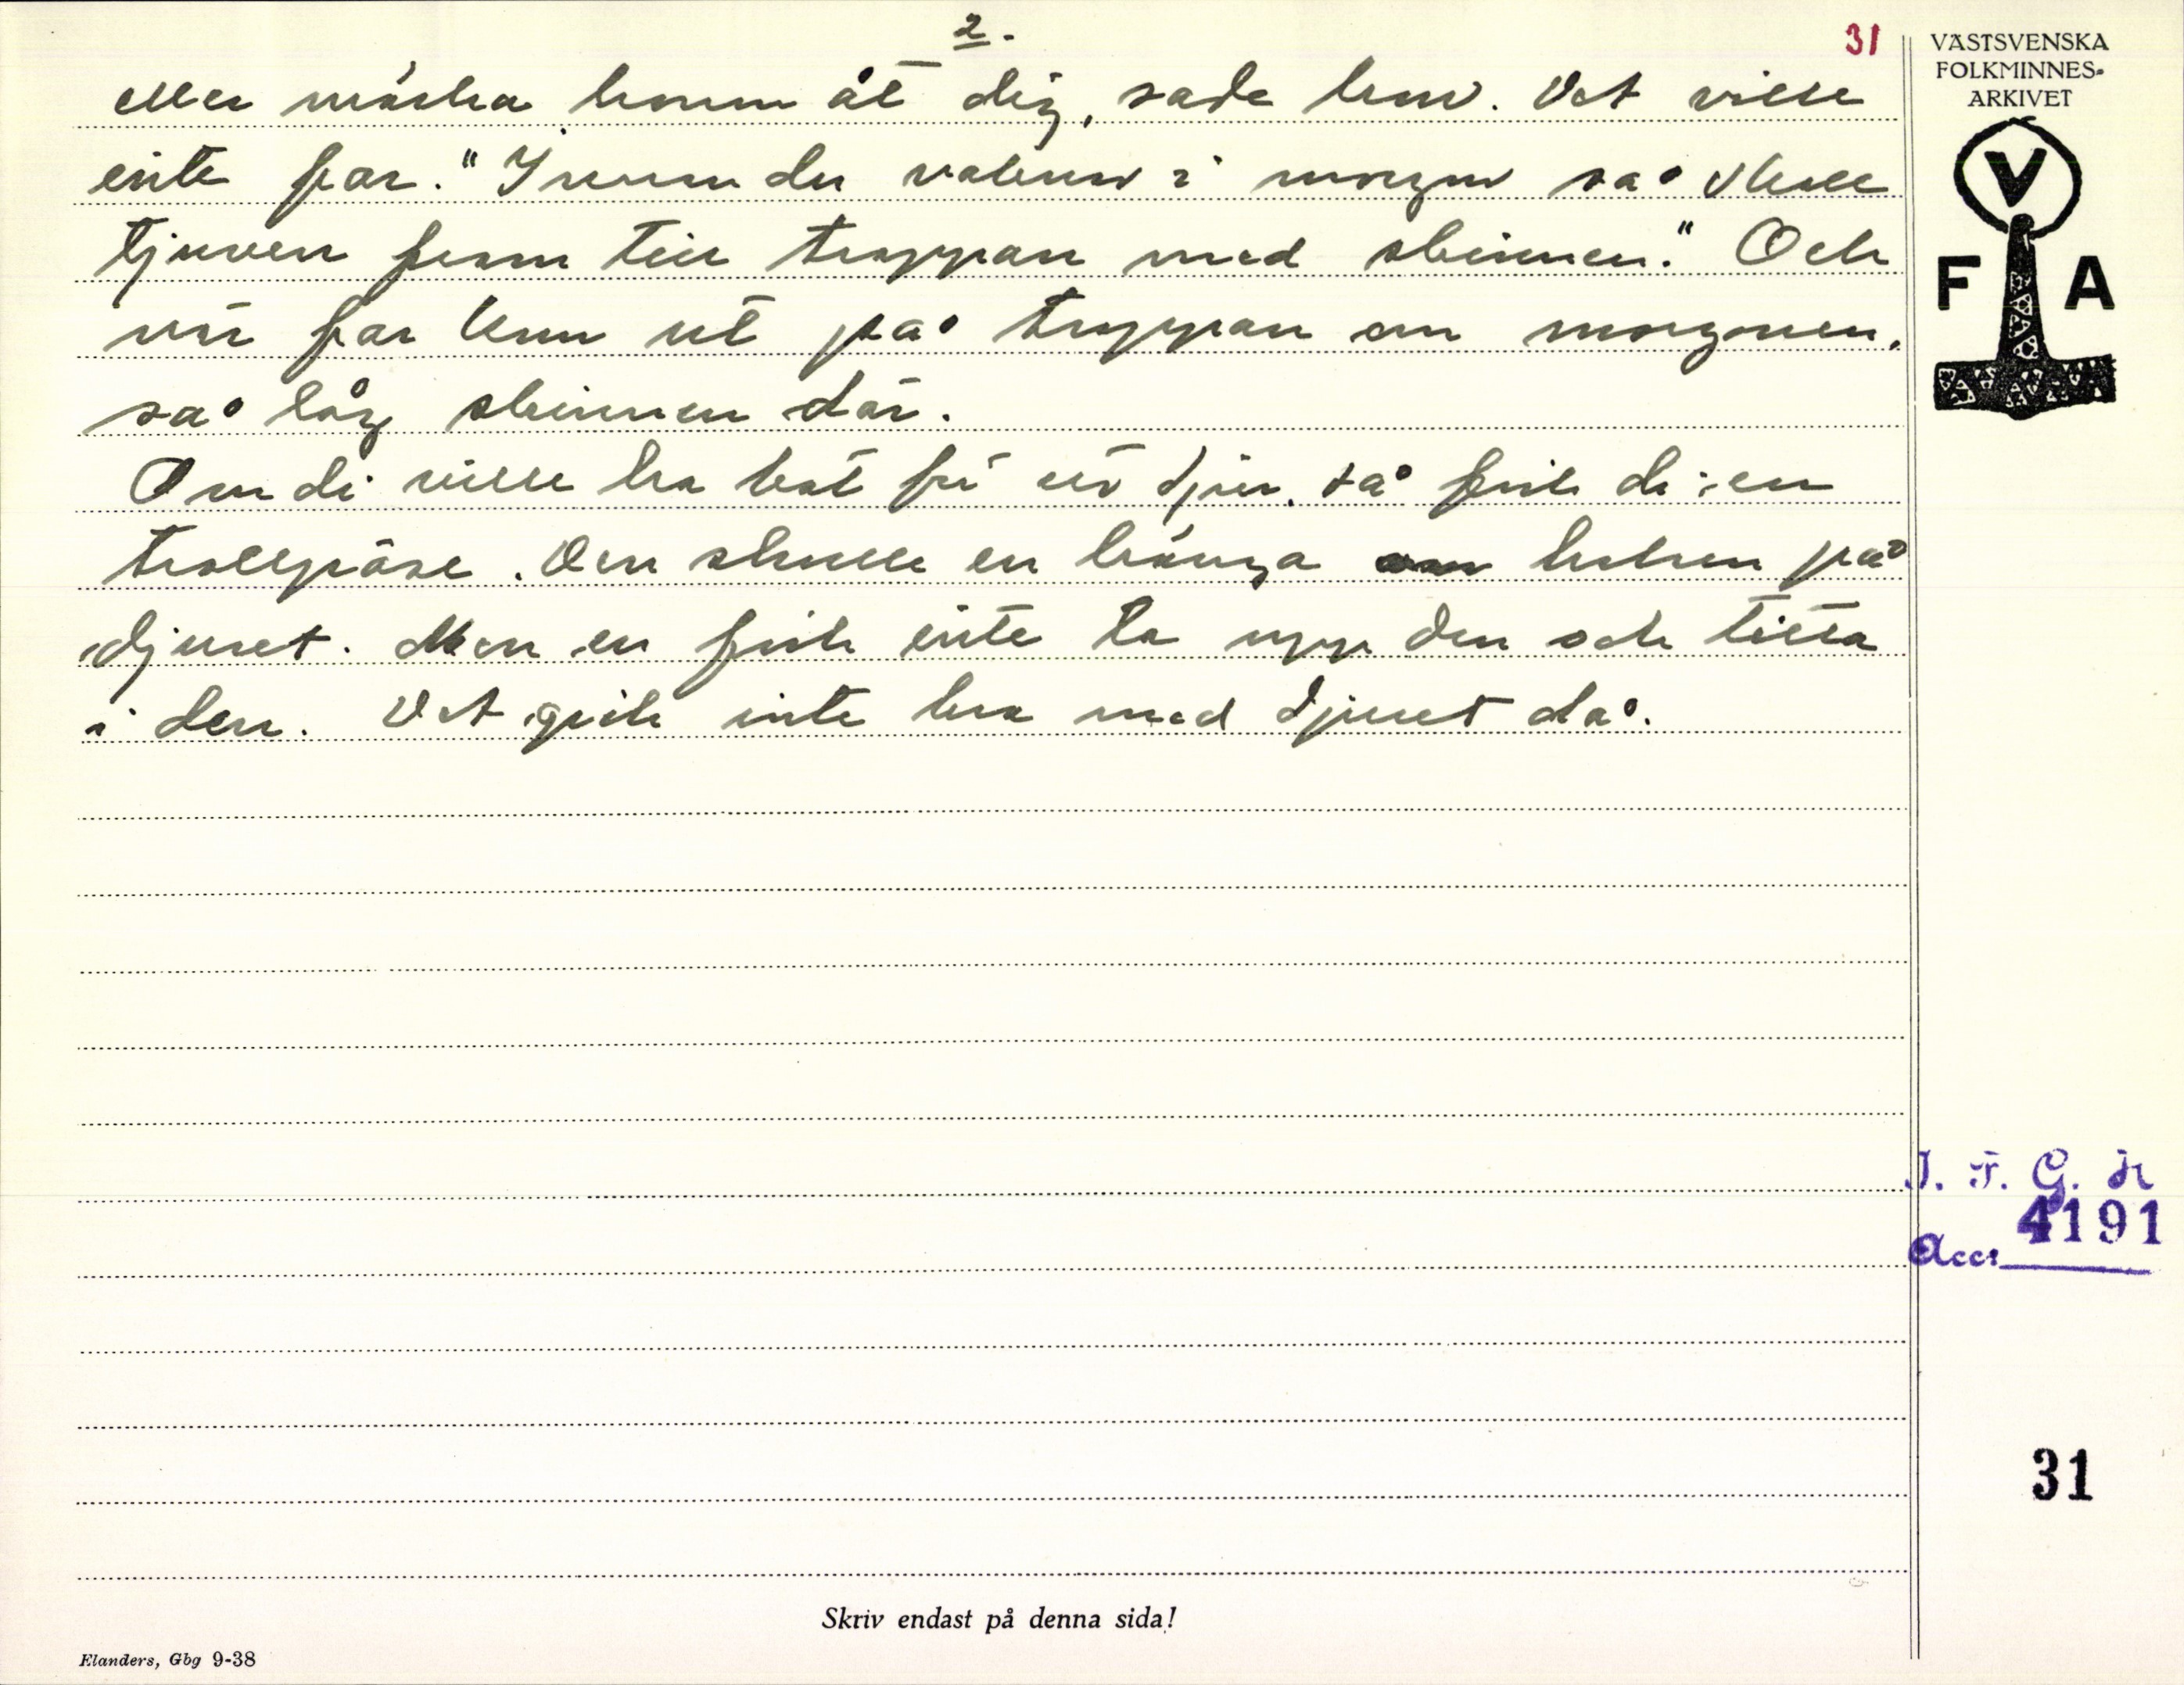 2.
31
eller märka honom åt dig, sade hon. Det ville
einte far. "Innan du vaknar i morgon så skall
tjuven fram till trappan med skinnen." Och
när far kom ut på trappan om morgonen,
så låg skinnen där.
Om di ville ha bot för ett djur, så fick di en
trollpåse. Den skulle en hänga om halsen på
djuret. Men en fick einte ta upp den och titta
i den. Det gick inte bra med djuret då.
VÄSTSVENSKA
FOLKMINNES-
ARKIVET
V
F A
I. F. G. H
Accr 4191
31
Skriv endast på denna sida!
Elanders, Gbg 9-38